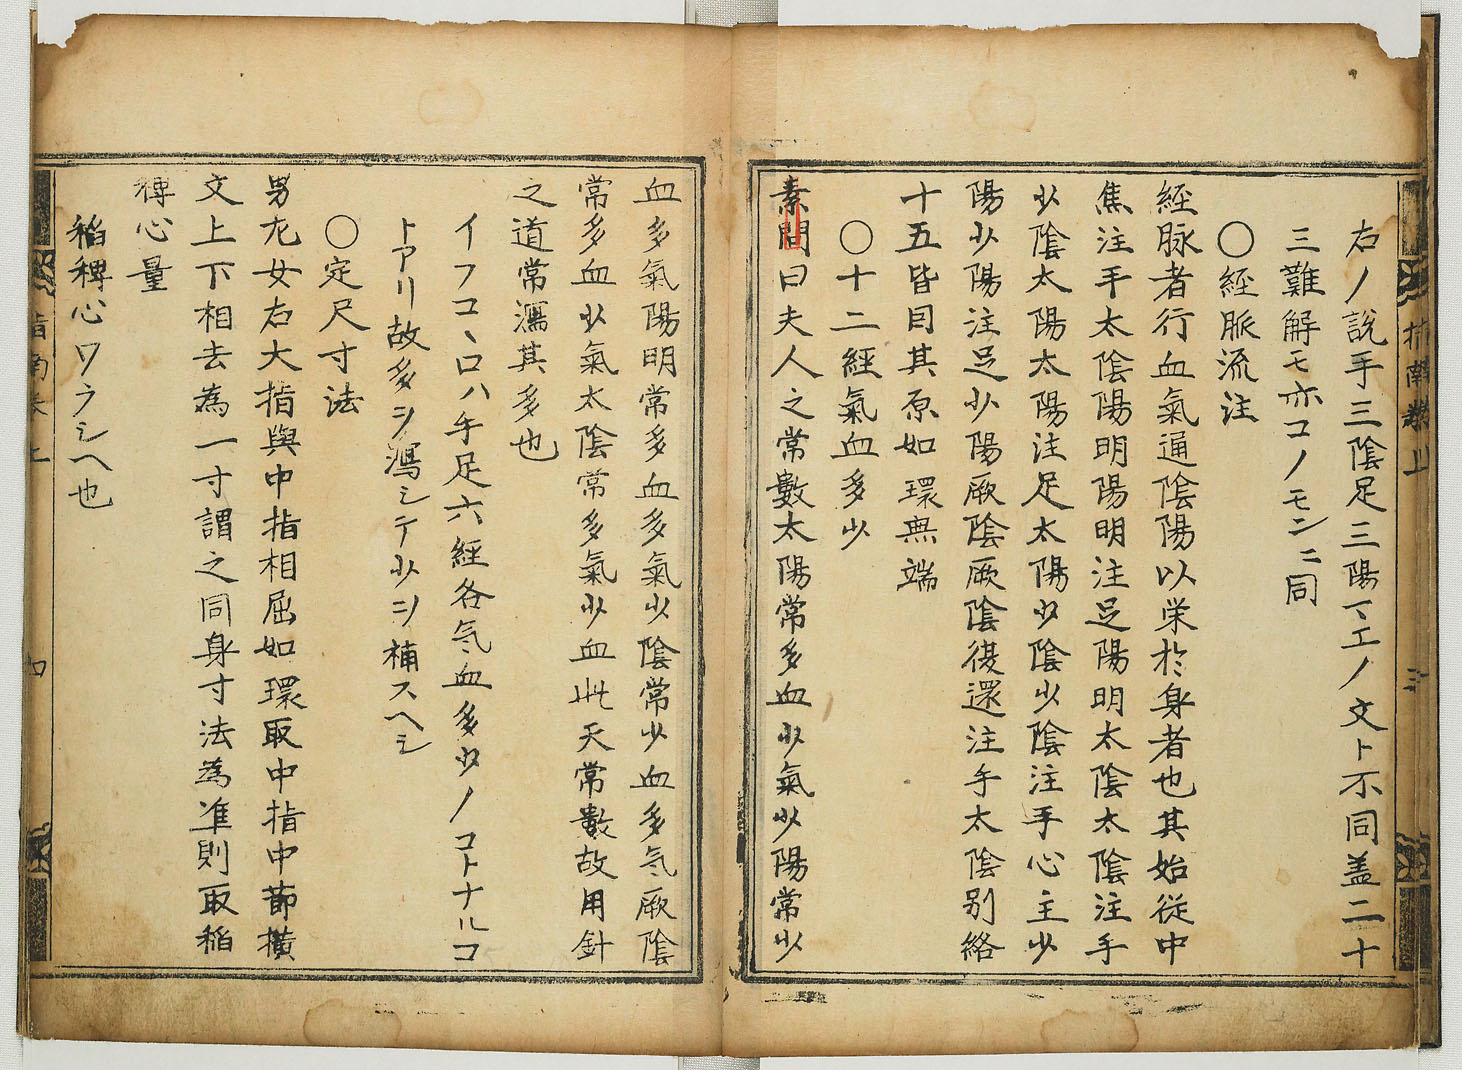 右ノ説手三陰足三陽マエノ文ト不同盖二十
三難解モ亦コノモンニ同
〇經脈流注
經脉者行血氣通陰陽以栄於身者也其始従中
焦注手太陰陽明陽明注足陽明太陰太陰注手
少陰太陽太陽注足太陽少陰少陰注手心主少
陽少陽注足少陽厥陰厥陰復還注手太陰别絡
十五皆因其原如環無端
〇十二經氣血多少
素問曰夫人之常數太陽常多血少氣少陽常少
血多氣陽明常多血多氣少陰常少血多氣厥陰
常多血少氣太陰常多氣少血此天常數故用針
之道常瀉其多也
イフコヽロハ手足六經各気血多少ノコトナルコ
トアリ故多ヲ瀉シテ少ヲ補スヘシ
〇定尺寸法
男左女右大指與中指相屈如環取中指中節横
文上下相去為一寸謂之同身寸法為準則取稲
稗心量
稲稗心ワラシヘ也
指南巻上
三
指南巻上
四